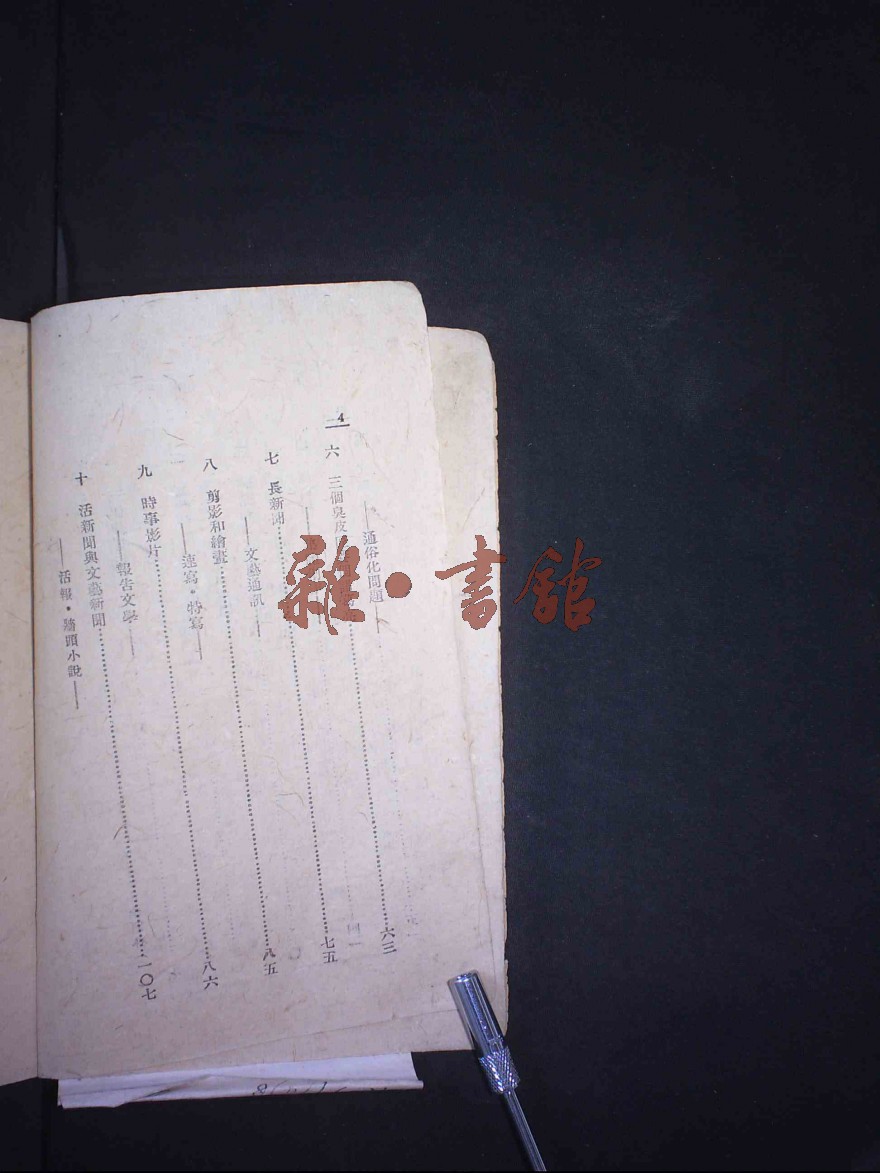 4
——通俗化問題——
六　三個臭皮……六三
七　長新聞……七五
——文藝通訊——
八　剪影和繪畫……八五
——速寫・特寫——
九　時事影片……八六
——報告文學——
十　活新聞與文藝新聞……一〇七
——活報・牆頭小說——
雜・書館